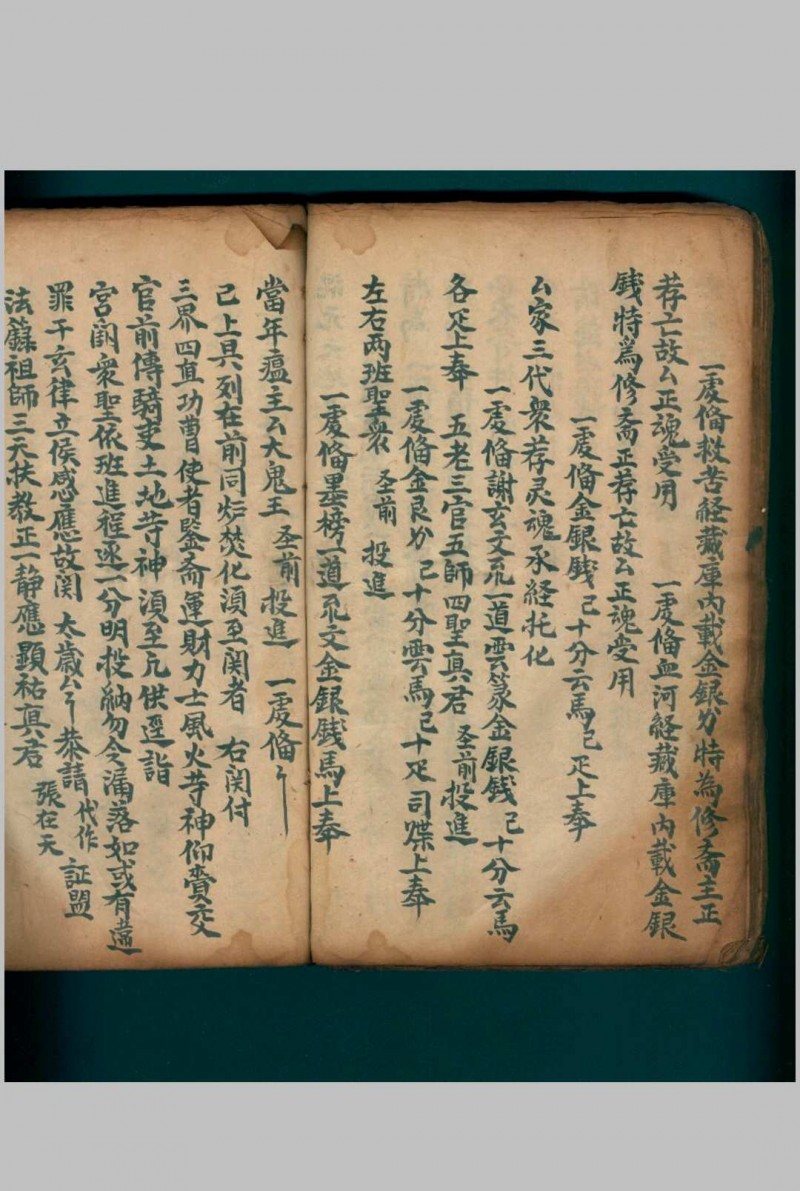 一處俻救苦経藏庫内載金銀分特為修斋主正
荐亡故厶正魂受用　一處俻血河経藏庫内載金銀
錢特為修斋正荐亡故厶正魂受用
一處俻金銀錢己十分云馬己疋上奉
厶家三代衆荐灵魂承経托化
一處俻謝玄文一道雲篆金銀錢己十分云馬
各疋上奉　五老三官五師四聖真君　圣前投進
一處俻金艮分己十分雲馬己十疋司牒上奉
左右两班聖衆　圣前　投進
一處俻墨榜一道文金銀錢馬上奉
當年瘟主厶大鬼王　圣前　投進　一處俻
已上具列在前同炉焚化湏至関者　右関付
三界四直功曹使者鑒斋運財力士風火䒭神仰賫交
官前傳騎吏土地䒭神湏至凡供逕詣
宮闕衆聖依班進程逐一分明投納勿令漏落如或有違
罪干玄律立俟感應故関　太歲厶　恭請　代作　証盟
法籙祖師三天扶教正一静應顕祐真君　張在天